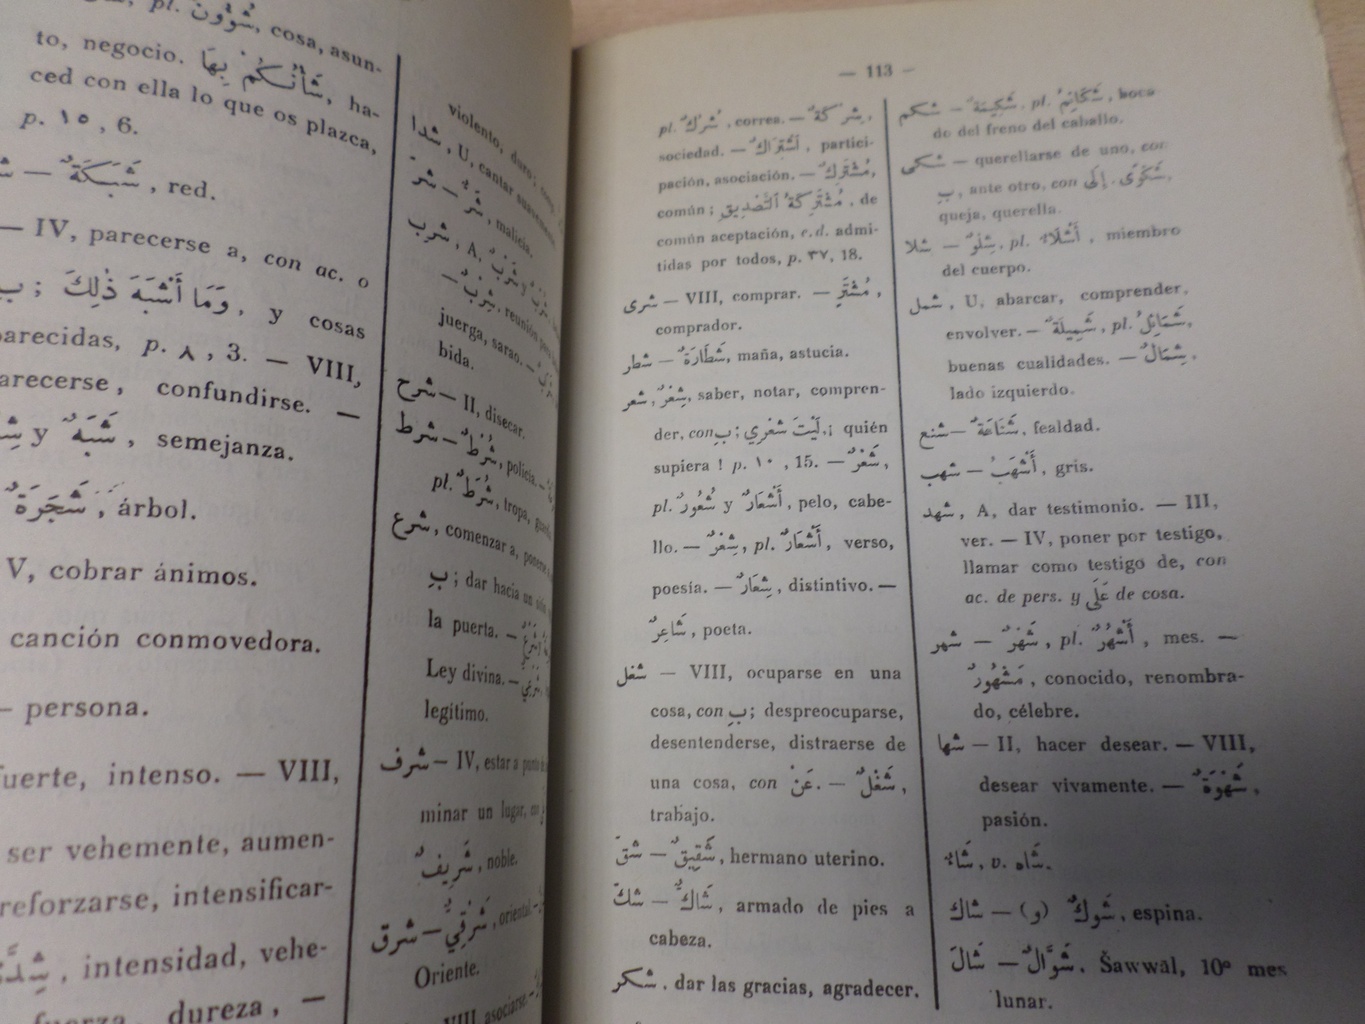 pl. شُؤُونٌ, cosa, asun-
to, negocio. شَأْنُكُمْ بِهَا, ha-
ced con ella lo que os plazca,
p. ١٥, 6.
شَبَكَةٌ, red.
— IV, parecerse a, con ac. o
بِ; وَمَا أَشْبَهَ ذٰلِكَ, y cosas
parecidas, p. ٨, 3. — VIII,
parecerse, confundirse. —
y شَبَهٌ, semejanza.
شَجَرَةٌ, árbol.
V, cobrar ánimos.
canción conmovedora.
— persona.
fuerte, intenso. — VIII,
ser vehemente, aumen-
reforzarse, intensificar-
شِدَّةٌ, intensidad, vehe-
fuerza, dureza, —
violento, duro;
شدا, U, cantar suavemente
شَرٌّ — شرّ, malicia.
شرب, A, شُرْبٌ y
— شِرْبٌ, reunión para
juerga, sarao. —
bida.
شرح — II, disecar.
شرط — شُرْطَةٌ, policía. —
pl. شُرَطٌ, tropa,
شرع, comenzar a, ponerse
بِ; dar hacia un
la puerta. —
Ley divina. —
legítimo.
شرف — IV, estar a punto de
minar un lugar,
شَرِيفٌ, noble.
شرق — شَرْقِيٌّ, oriental. —
Oriente.
VIII asociarse. —
— 113 —
pl. شُرُكٌ, correa. — شِرْكَةٌ,
sociedad. — اَشْتِرَاكٌ, partici-
pación, asociación. — مُشْتَرِكٌ,
común; مُشْتَرِكَةُ ٱلتَّصْدِيقِ, de
común aceptación, e.d. admi-
tidas por todos, p. ٣٧, 18.
شرى — VIII, comprar. — مُشْتَرٍ,
comprador.
شطر — شَطَارَةٌ, maña, astucia.
شعر, شِعْرٌ, saber, notar, compren-
der, con بِ; لَيْتَ شِعْرِي, ¡ quién
supiera ! p. ١٠, 15. — شَعْرٌ,
pl. شُعُورٌ y أَشْعَارٌ, pelo, cabe-
llo. — شِعْرٌ, pl. أَشْعَارٌ, verso,
poesía. — شِعَارٌ, distintivo. —
شَاعِرٌ, poeta.
شغل — VIII, ocuparse en una
cosa, con بِ; despreocuparse,
desentenderse, distraerse de
una cosa, con عَنْ. — شُغْلٌ,
trabajo.
شقّ — شَقِيقٌ, hermano uterino.
شكّ — شَاكٌّ, armado de pies a
cabeza.
شكر, dar las gracias, agradecer.
شكم — شَكِيمَةٌ, pl. شَكَائِمُ, boca
do del freno del caballo.
شكى — querellarse de uno, con
بِ, ante otro, con إِلَى. شَكْوَى,
queja, querella.
شلا — شِلْوٌ, pl. أَشْلَاءٌ, miembro
del cuerpo.
شمل, U, abarcar, comprender,
envolver. — شَمِيلَةٌ, pl. شَمَائِلُ,
buenas cualidades. — شِمَالٌ,
lado izquierdo.
شنع — شَنَاعَةٌ, fealdad.
شهب — أَشْهَبُ, gris.
شهد, A, dar testimonio. — III,
ver. — IV, poner por testigo,
llamar como testigo de, con
ac. de pers. y عَلَى de cosa.
شهر — شَهْرٌ, pl. أَشْهُرٌ, mes. —
مَشْهُورٌ, conocido, renombra-
do, célebre.
شها — II, hacer desear. — VIII,
desear vivamente. — شَهْوَةٌ,
pasión.
شَاءٌ, v. شَاه.
شاك (و) — شَوكٌ, espina.
شَالَ — شَوَّالٌ, Šawwāl, 10º mes
lunar.